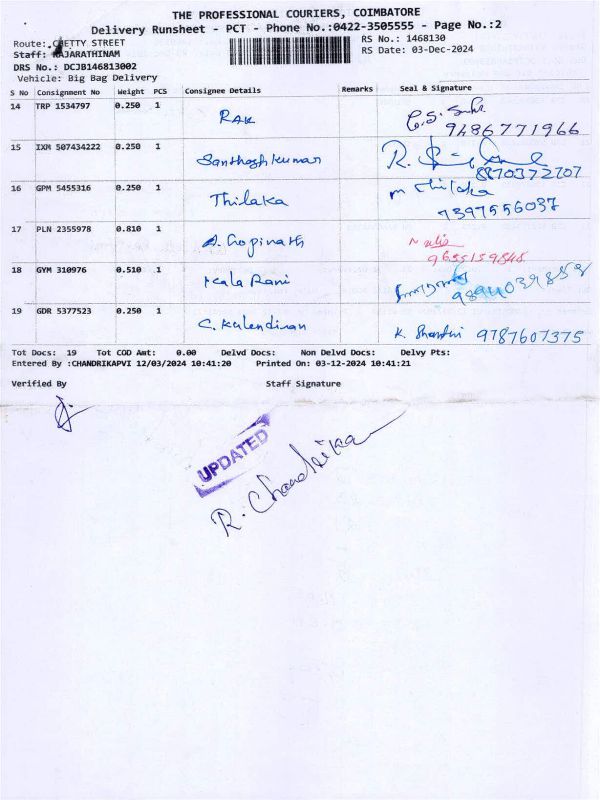 THE PROFESSIONAL COURIERS, COIMBATORE
Delivery Runsheet - PCT - Phone No.:0422-3505555 - Page No.:2
Route: CHETTY STREET
RS No.: 1468130
Staff: RAJARATHINAM
RS Date: 03-Dec-2024
DRS No.: DCJB146813002
Vehicle: Big Bag Delivery
S No Consignment No Weight PCS Consignee Details Remarks Seal & Signature
14 TRP 1534797 0.250 1 RAK
9486771966
15 IXM 507434222 0.250 1 Santhosh kumar R.
8870372707
16 GPM 5455316 0.250 1 Thilaka m thilaka
7397556037
17 PLN 2355978 0.810 1 A. Gopinath
9655159848
18 GYM 310976 0.510 1 Kala Rani
19 GDR 5377523 0.250 1 K. Shanthi 9787607375
Tot Docs: 19 Tot COD Amt: 0.00 Delvd Docs: Non Delvd Docs: Delvy Pts:
Entered By :CHANDRIKAPVI 12/03/2024 10:41:20 Printed On: 03-12-2024 10:41:21
Verified By Staff Signature
UPDATED
R. Chandrika